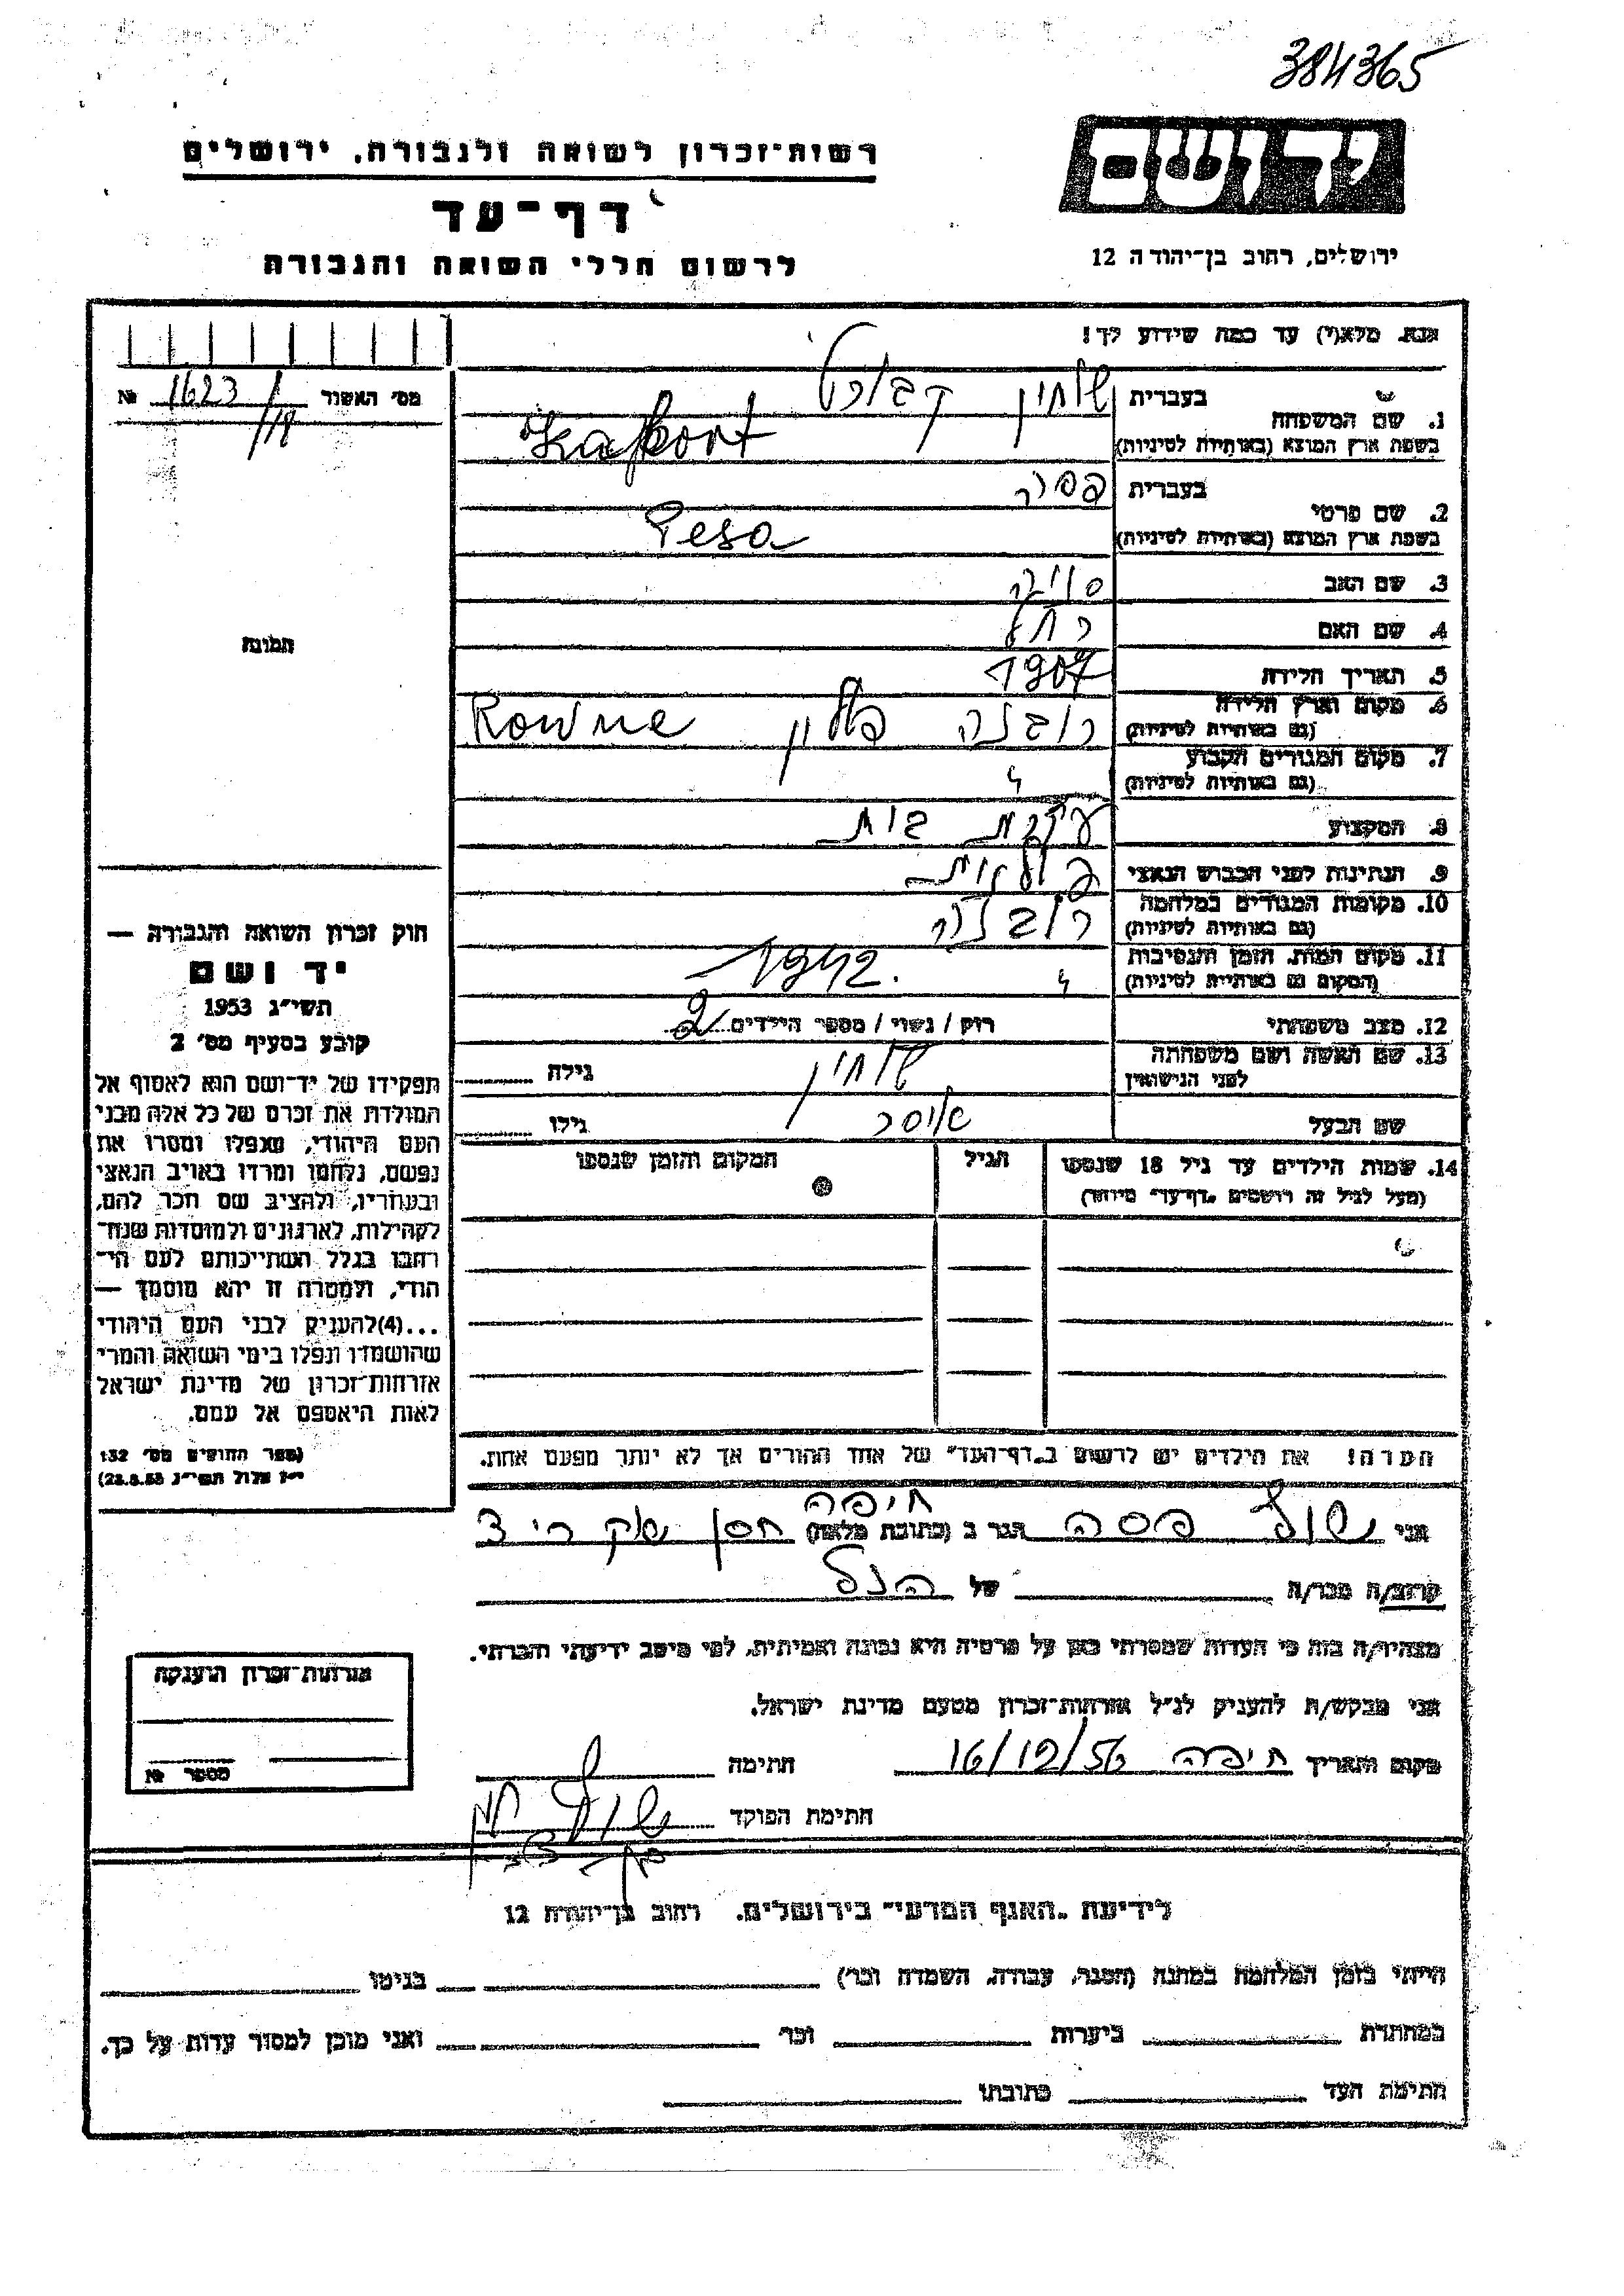 384365
יד ושם
ירושלים, רחוב בן־יהודה 12
רשות־זכרון לשואה ולגבורה, ירושלים
דף־עד
לרשום חללי השואה והגבורה
אנא, מלא(י) עד כמה שידוע לך!
מס׳ האשור 1623/118 №
תמונה
1. שם המשפחה
בעברית
בשפת ארץ המוצא (באותיות לטיניות) Kafkort
2. שם פרטי
בעברית פסיה
בשפת ארץ המוצא (באותיות לטיניות) Pesa
3. שם האב
4. שם האם רחל
5. תאריך הלידה 1907
6. מקום וארץ הלידה (גם באותיות לטיניות) רובנה פולין Rowne
7. מקום המגורים הקבוע (גם באותיות לטיניות) "
8. המקצוע עקרת בית
9. הנתינות לפני הכבוש הנאצי פולנית
10. מקומות המגורים במלחמה (גם באותיות לטיניות) רובנה
11. מקום המות, הזמן והנסיבות (המקום גם באותיות לטיניות) " 1942.
12. מצב משפחתי רוק / נשוי / מספר הילדים 2
13. שם האשה ושם משפחתה לפני הנישואין גילה
שם הבעל גילו
14. שמות הילדים עד גיל 18 שנספו
(מעל לגיל זה רושמים „דף־עד” מיוחד)
הגיל
המקום והזמן שנספו
הערה! את הילדים יש לרשום ב„דף־העד” של אחד ההורים אך לא יותר מפעם אחת.
חוק זכרון השואה והגבורה —
יד ושם
תשי״ג 1953
קובע בסעיף מס׳ 2
תפקידו של יד־ושם הוא לאסוף אל
המולדת את זכרם של כל אלה מבני
העם היהודי, שנפלו ומסרו את
נפשם, נלחמו ומרדו באויב הנאצי
ובעוזריו, ולהציב שם וזכר להם,
לקהילות, לארגונים ולמוסדות שנח־
רבו בגלל השתייכותם לעם הי־
הודי, ולמטרה זו יהא מוסמך —
...(4)להעניק לבני העם היהודי
שהושמדו ונפלו בימי השואה והמרי
אזרחות־זכרון של מדינת ישראל
לאות היאספם אל עמם.
(ספר החוקים מס׳ 132
י״ז אלול תשי״ג 28.8.53)
אני פסה הגר ב (כתובת מלאה) חיפה
קרוב/ה מכר/ה של הנ״ל
מצהיר/ה בזה כי העדות שמסרתי כאן על פרטיה היא נכונה ואמיתית, לפי מיטב ידיעתי והכרתי.
אני מבקש/ת להעניק לנ״ל אזרחות־זכרון מטעם מדינת ישראל.
מקום ותאריך חיפה 16/12/56 חתימה
חתימת הפוקד
אזרחות־זכרון הוענקה
מספר №
לידיעת „האגף המדעי” בירושלים, רחוב בן־יהודה 12
הייתי בזמן המלחמה במחנה (הסגר, עבודה, השמדה וכר׳) בגיטו
במחתרת ביערות וכר׳ ואני מוכן למסור עדות על כך.
חתימת העד כתובתו